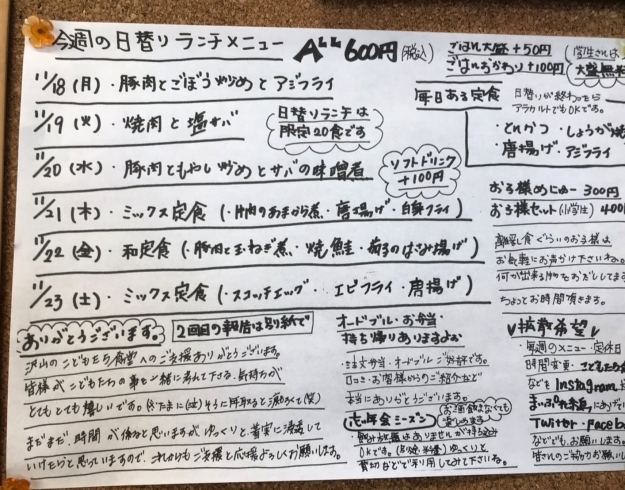 今週の日替りランチメニュー ALL 600円(税込)
11/18(月)・豚肉とごぼう炒めとアジフライ
11/19(火)・焼肉と塩サバ
日替りランチは
限定20食です
11/20(水)・豚肉ともやし炒めとサバの味噌煮
ソフトドリンク
+100円
11/21(木)・ミックス定食(・肉のあまから煮・唐揚げ・白身フライ)
11/22(金)・和定食(・豚肉と玉ねぎ煮・焼鮭・茄子のはさみ揚げ)
11/23(土)・ミックス定食(・スコッチエッグ・エビフライ・唐揚げ)
ごはん大盛+50円
ごはんおかわり+100円
(学生さんは
大盛無料
毎日ある定食
日替りが終わったら
アラカルトでもOKです。
・とんカツ・しょうが焼
・唐揚げ・アジフライ
お子様めにゅー 300円
お子様セット(小学生)400
離乳食ぐらいのお子様は
お気軽にお声かけ下さいね。
何か出来る物をお出しします
ちょっとお時間頂きます。
ありがとうございます。
2回目の報告は別紙で
沢山のこども食堂へのご支援ありがとうございます。
皆様がこどもたちの事も一緒に考えて下さる気持ちが
とてもとても嬉しいです。
まだまだ時間が係ると思いますがゆっくりと着実に浸透して
いけたらと思っていますので、これからもご支援と応援よろしくお願いします。
オードブル・お弁当
持ち帰りありますよ
・注文弁当・オードブルご好評です。
口コミ・お客様からのご紹介など
本当にありがとうございます。
忘年会シーズン
お酒飲まなくても
楽しめます
飲み放題はありませんが持ち込み
OKです。ゆっくりと
貸切などでご利用してみて下さいね。
拡散希望
・毎週のメニュー・定休日
時間変更・こども
なども Instagram
まいぷれ
Twitter・Faceb
などでも、お願いします。
皆さんのご協力お願いし